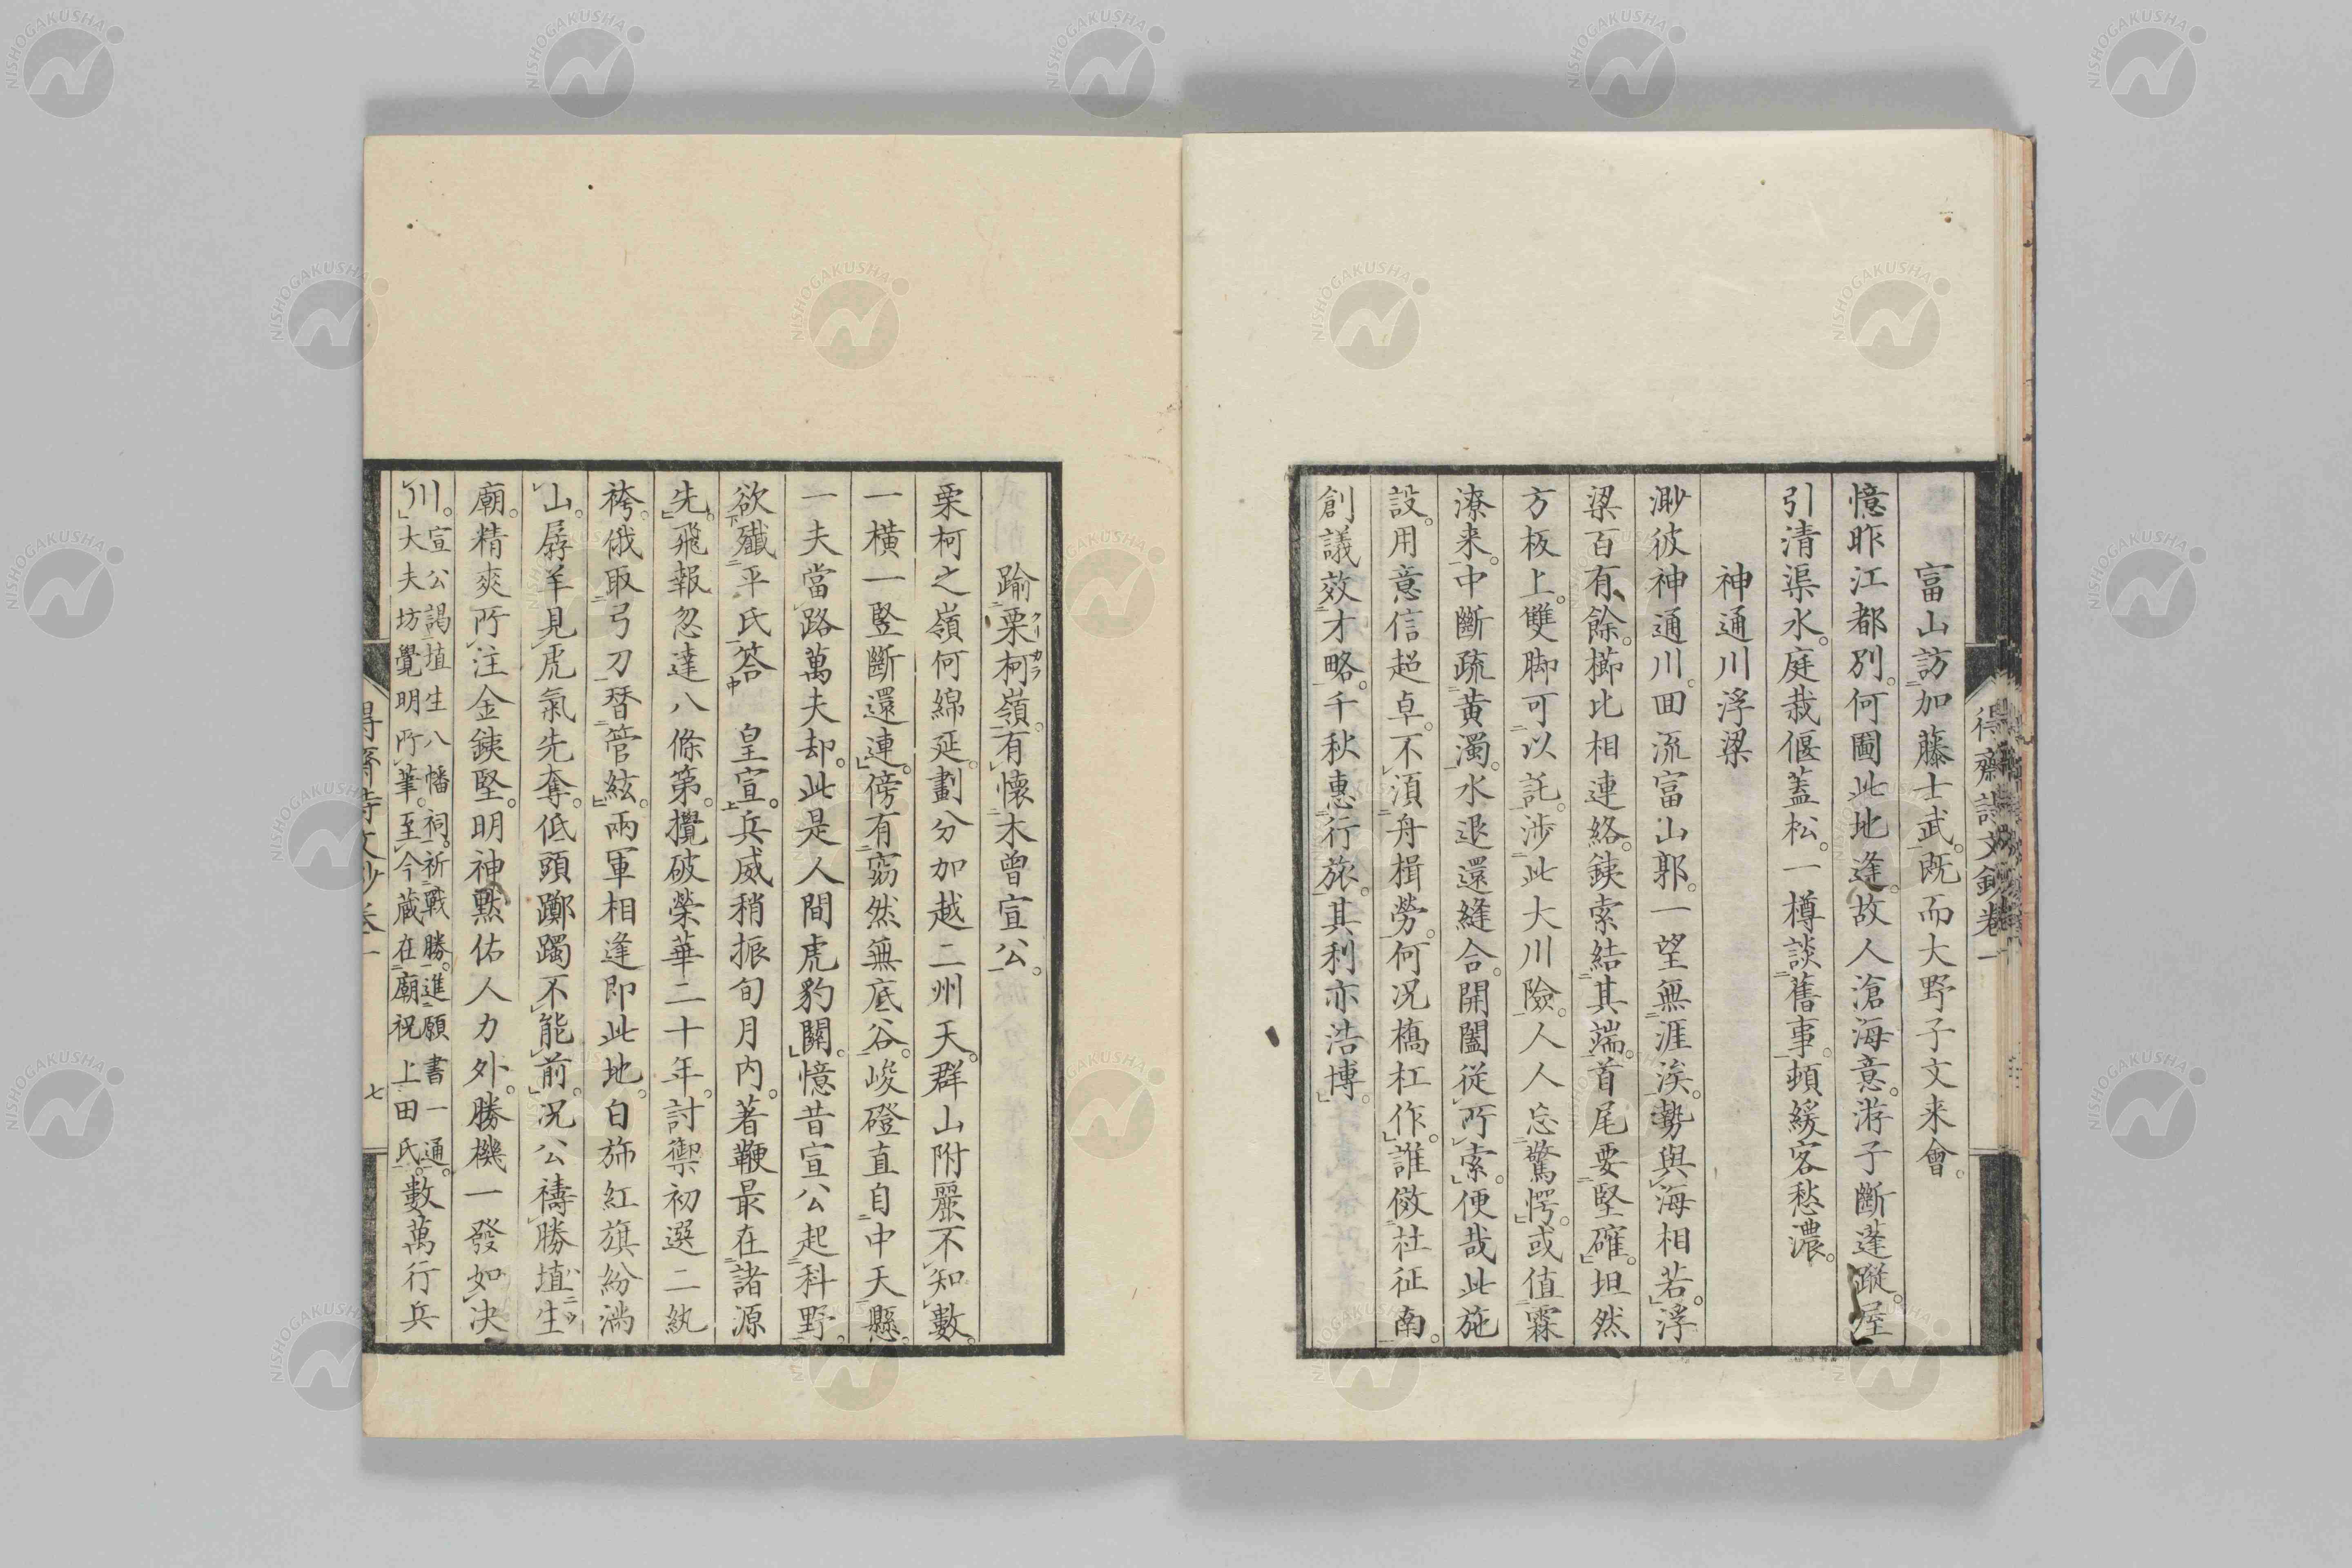 富山訪加藤士武。既而大野子文来會。
憶昨江都別。何圖此地逢。故人滄海意。游子斷蓬蹤。屋
引清渠水。庭栽偃蓋松。一樽談舊事。頓緩客愁濃。
神通川浮梁
渺彼神通川。回流富山郭。一望無涯涘。勢與海相若。浮
梁百有餘。櫛比相連絡。鉄索結其端。首尾要堅確。坦然
方板上。雙脚可以託。渉此大川險。人人忘驚愕。或值霖
潦来。中斷疏黄濁。水退還縫合。開闔從所索。便哉此施
設。用意信超卓。不須舟楫勞。何况橋杠作。誰倣杜征南。
創議效才略。千秋惠行旅。其利亦浩博。
得齋詩文鈔卷一
踰栗柯嶺。有懷木曾宣公。
クリカラ
栗柯之嶺何綿延。劃分加越二州天。群山附麗不知數。
一橫一豎斷還連。傍有窈然無底谷。峻磴直自中天懸。
一夫當路萬夫却。此是人間虎豹關。憶昔宣公起科野。
欲殲平氏答皇宣。兵威稍振旬月内。著鞭最在諸源
先。飛報忽達八條第。攪破榮華二十年。討禦初選二紈
袴。俄取弓刀替管絃。兩軍相逢即此地。白斾紅旗紛満
山。羼羊見虎氣先奪。低頭躑躅不能前。况公禱勝埴生
廟。精爽所注金鉄堅。明神黙佑人力外。勝機一發如决
川。宣公謁埴生八幡祠。祈戰勝。進願書一通。
大夫坊覺明所筆。至今藏在廟祝上田氏。數萬行兵
得齋詩文鈔卷一
七
NISHOGAKUSHA